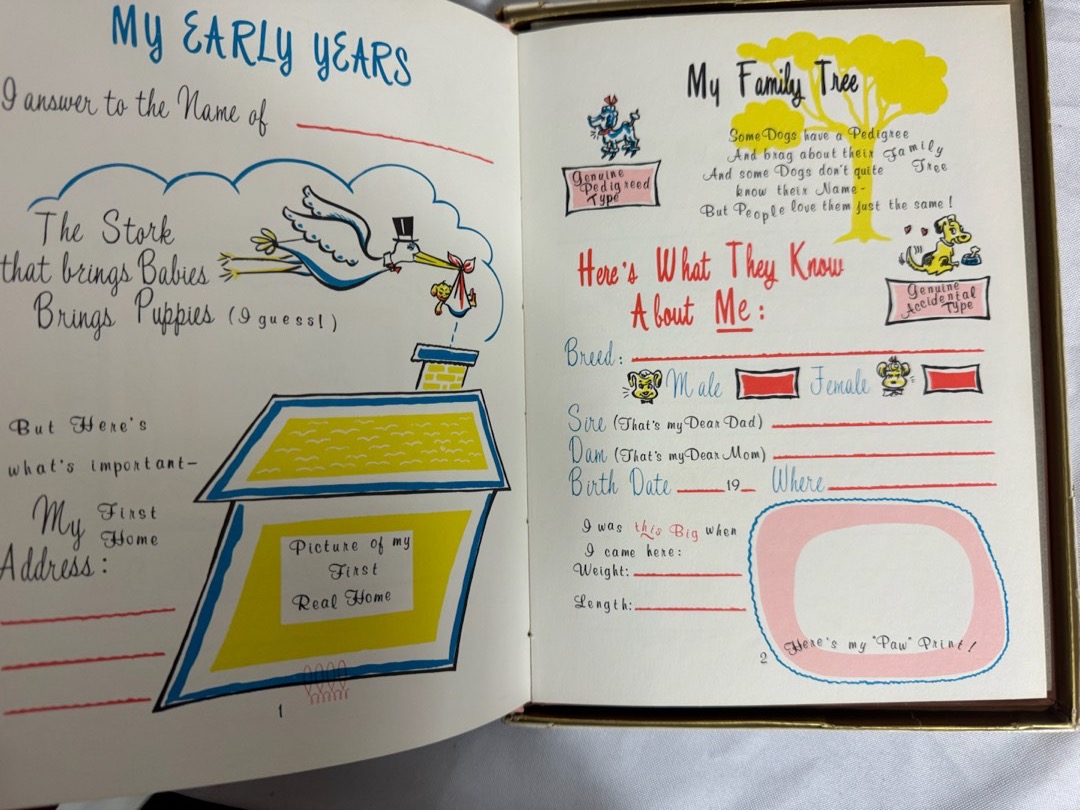 My Early Years
I answer to the Name of
The Stork
that brings Babies
Brings Puppies (I guess!)
But Here's
what's important-
My First
Home
Address:
Picture of my
First
Real Home
1
My Family Tree
Some Dogs have a Pedigree
And brag about their Family
Tree
And some Dogs don't quite
know their Name-
But People love them just the same!
Genuine
Pedigreed
Type
Genuine
Accidental
Type
Here's What They Know
About Me:
Breed:
Male Female
Sire (That's my Dear Dad)
Dam (That's my Dear Mom)
Birth Date 19 Where
I was this Big when
I came here:
Weight:
Length:
Here's my "Paw" Print!
2